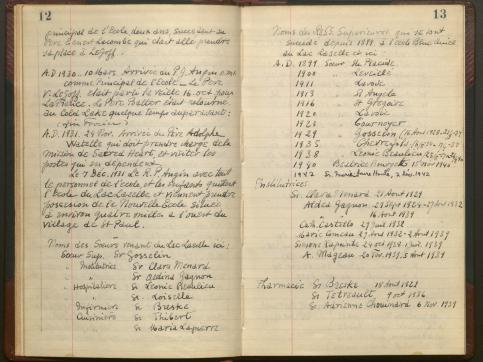 12
principal de l'école deux ans, succédant au
Père Ernest Lacombe qui était allé prendre
sa place à Legoff.
A.D. 1930. 10 Mars. Arrivée du P. J. Angin o.m.i.
comme Principal de l'école. Le Père
V. Legoff était parti la veille 16 oct pour
La Police. Le Père Balter était retourné
au Cold Lake quelque temps auparavant:
A.D. 1931. 24 Nov. Arrivée du Père Adolphe
Watelle qui doit prendre charge de la
mission de Sacred Heart, et visiter les
postes qui en dépendent.
Le 7 Déc. 1931 Le R.P. Angin avec tout
le personnel de l'école et les enfants quittent
l'école du Lac Laselle et viennent prendre
possession de la Nouvelle Ecole située
à environ quatre milles à l'ouest du
village de St Paul.
Noms des Sœurs venant du Lac Laselle ici:
Sœur Sup. Sr Gosselin
" Institutrice Sr Clara Menard
" Sr Aldina Gagnon
" Hospitalière Sr Léonie Beaulieu
" Sr Loiselle
" Infirmière Sr Breske
" Cuisinière Sr Thibert
Sr Maria Lapierre
13
Noms des RRSS. Supérieures qui se sont
succédé depuis 1899 à l'école Blue Quills
au Lac Laselle et ici
A.D. 1899 Sœur St Placide
1900 " Leveille
1911 " Lavoie
1913 " St Angela
1916 " St Grégoire
1920 " Lavoie
1926 " Cournoyer
1929 " Gosselin
1935 " Chevrefils
1938 " Léonie Beaulieu
1940 " Béatrice
1942
Institutrices
Sr. Clara Menard 21 Août 1929
Aldea Gagnon 29 Sept 1924 - 27 Août 1932
16 Août 1939
27 Juil. 1932
Marie Comeau 27 Août 1932 - 2 Août 1939
Simone Lapointe 24 oct 1938 - 1 Juil. 1939
A. Mageau 20 Fév. 1939, 5 Août 1939
Pharmacie Sr Breske 18 Août 1928
Sr Tetreault 9 oct 1936
Sr Adrienne Chouinard 6 Nov 1939